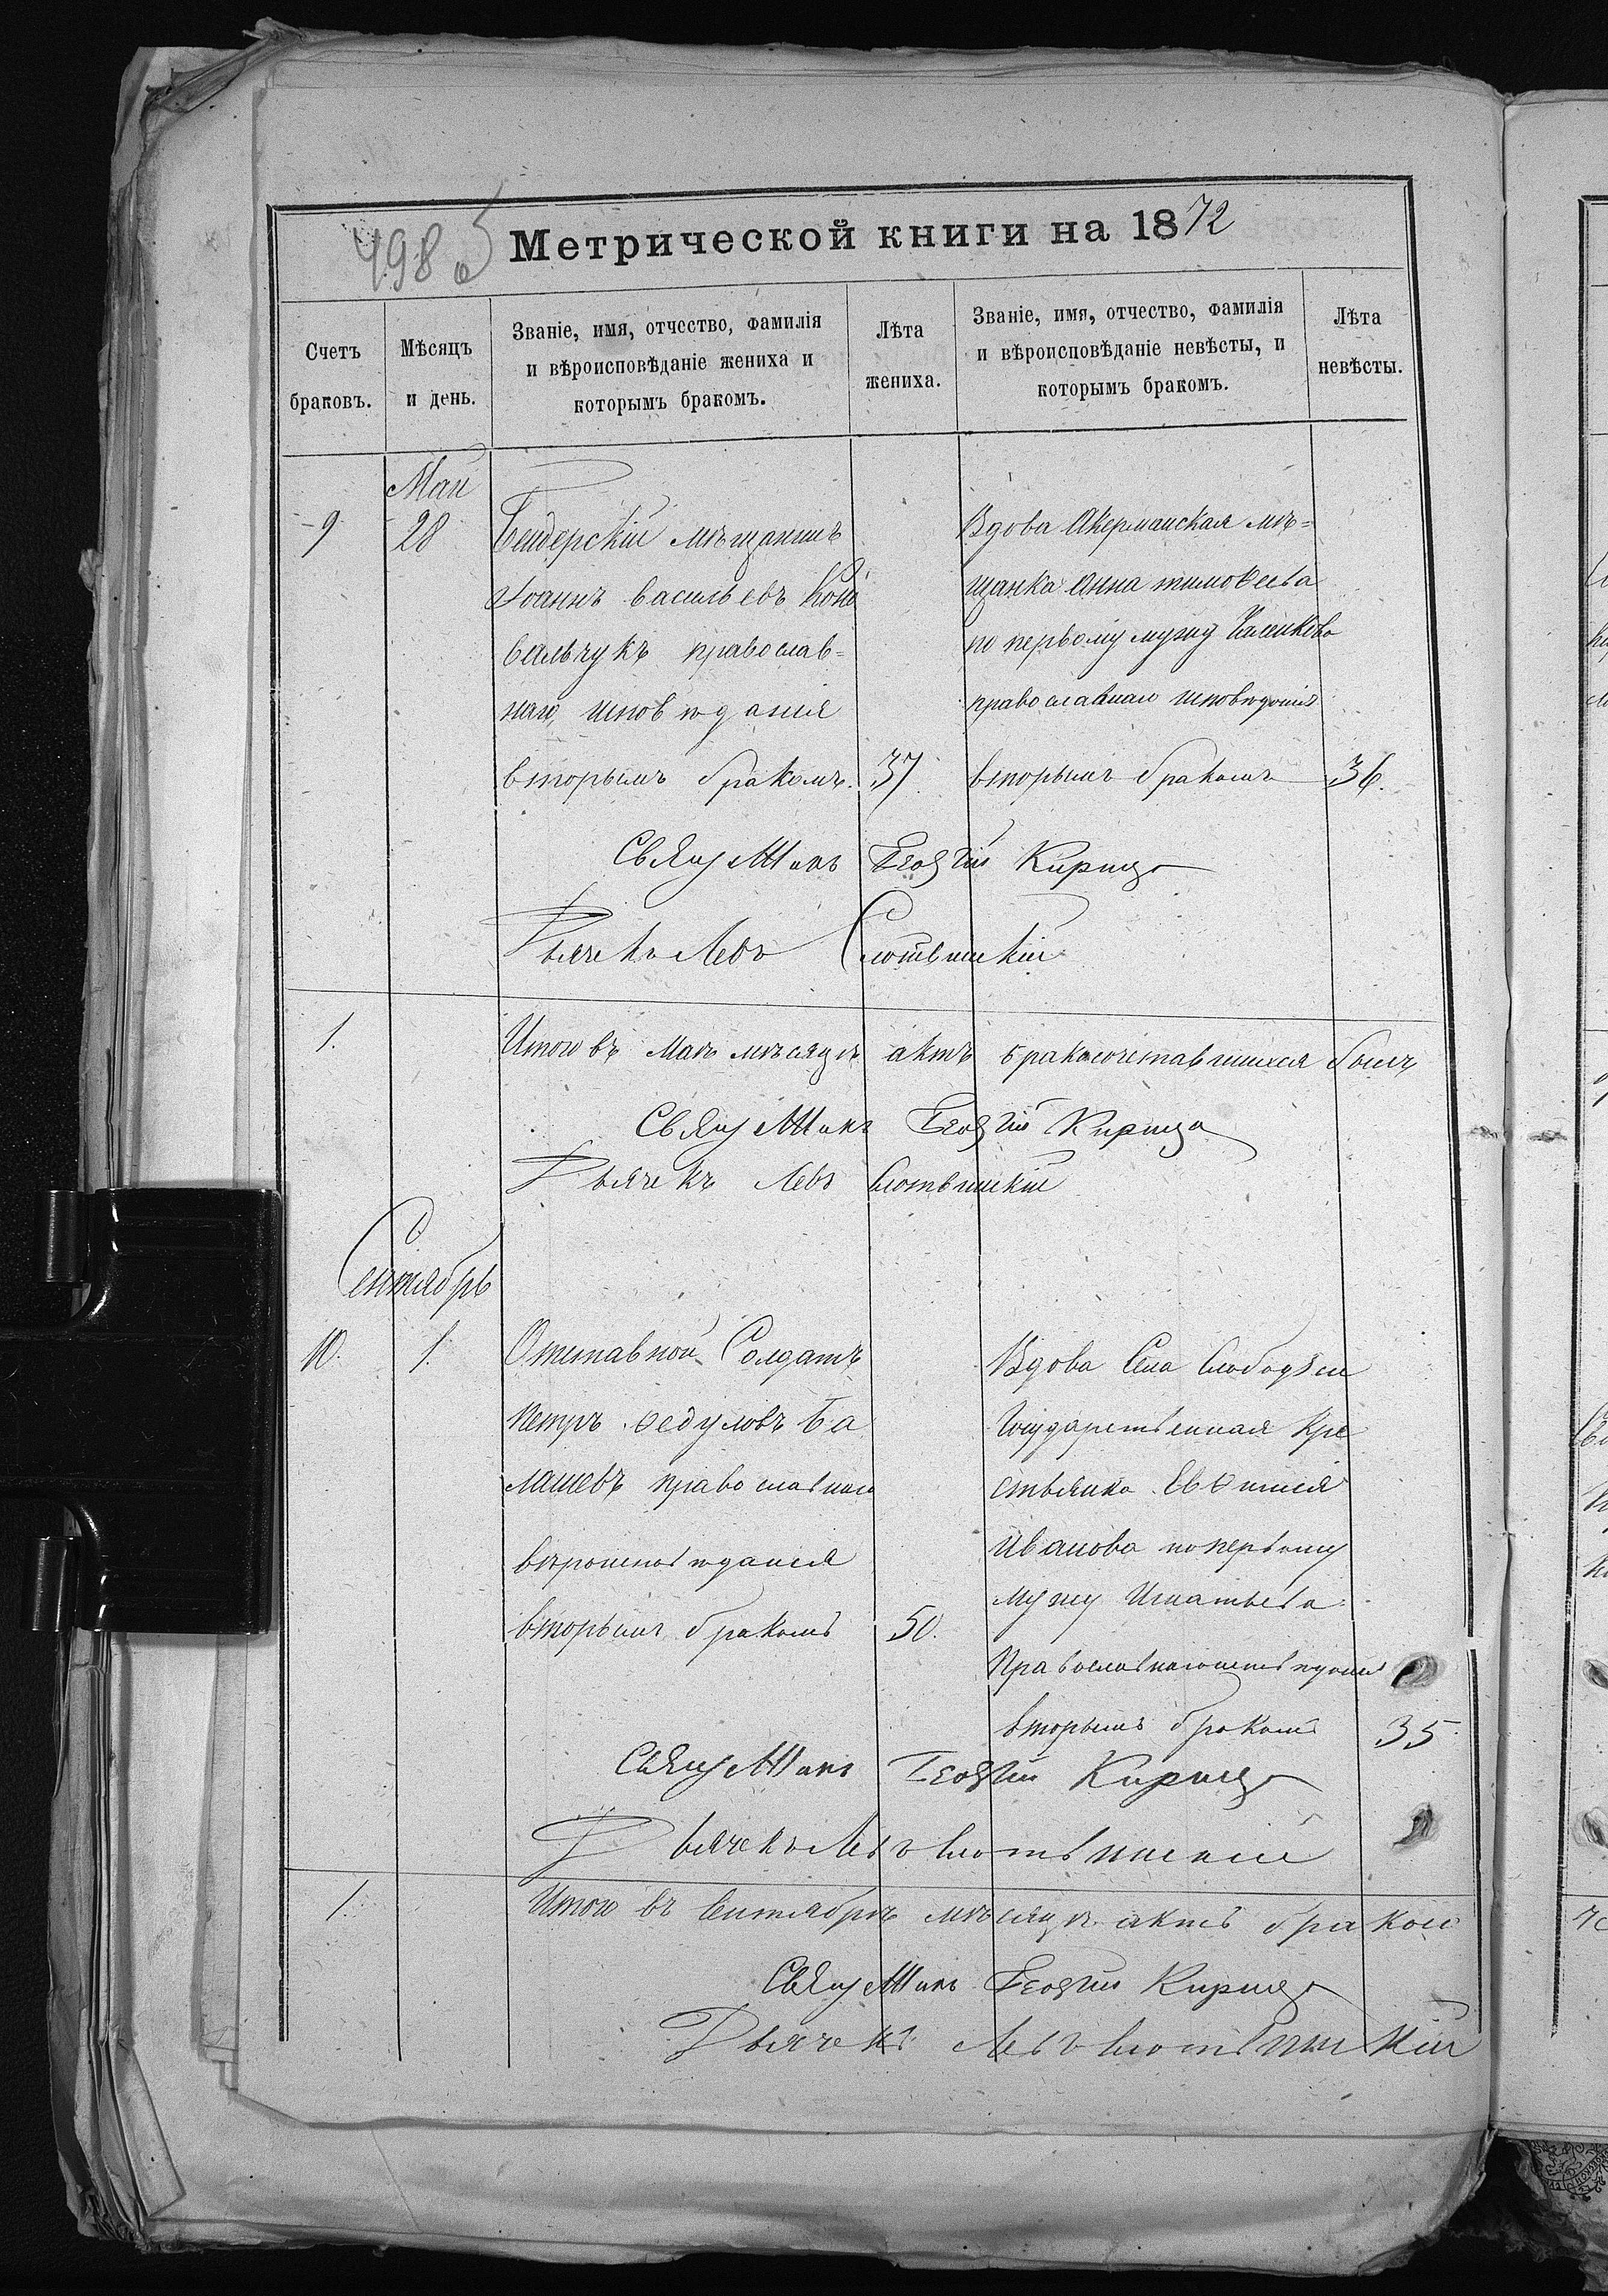 498
Метрической книги на 1872
Счетъ браковъ.
Мѣсяцъ и день.
Званіе, имя, отчество, фамилія
и вѣроисповѣданіе жениха и
которымъ бракомъ.
Лѣта
жениха.
Званіе, имя, отчество, фамилія
и вѣроисповѣданіе невѣсты, и
которымъ бракомъ.
Лѣта
невѣсты.
Май
9 28 Бендерскій мѣщанинъ
Іоаннъ Васильевъ Коно
вальчукъ православ=
наго исповѣданія
вторымъ бракомъ. 37.
Вдова Акерманская мѣ=
щанка Анна Тимоѳеева
по первому мужу
православнаго исповѣданія
вторымъ бракомъ 36.
Священникъ Георгій
Дьячекъ Левъ
1. Итого въ Маѣ мѣсяцѣ актъ бракосочетавшихся былъ
Священникъ Георгій
Дьячекъ Левъ
Сентябрь
10. 1. Отставной Солдатъ
Петръ Ѳедуловъ Ба
лашевъ православнаго
вѣроисповѣданія
вторымъ бракомъ 50.
Вдова Села Слободзеи
Государственная Кре
стьянка Евѳимія
Иванова по первому
мужу Игнатьева
Православнаго исповѣданія
вторымъ бракомъ 35.
Священникъ Георгій
Дьячекъ Левъ
1. Итого въ Сентябрѣ мѣсяцѣ актъ
Священникъ Георгій
Дьячекъ Левъ